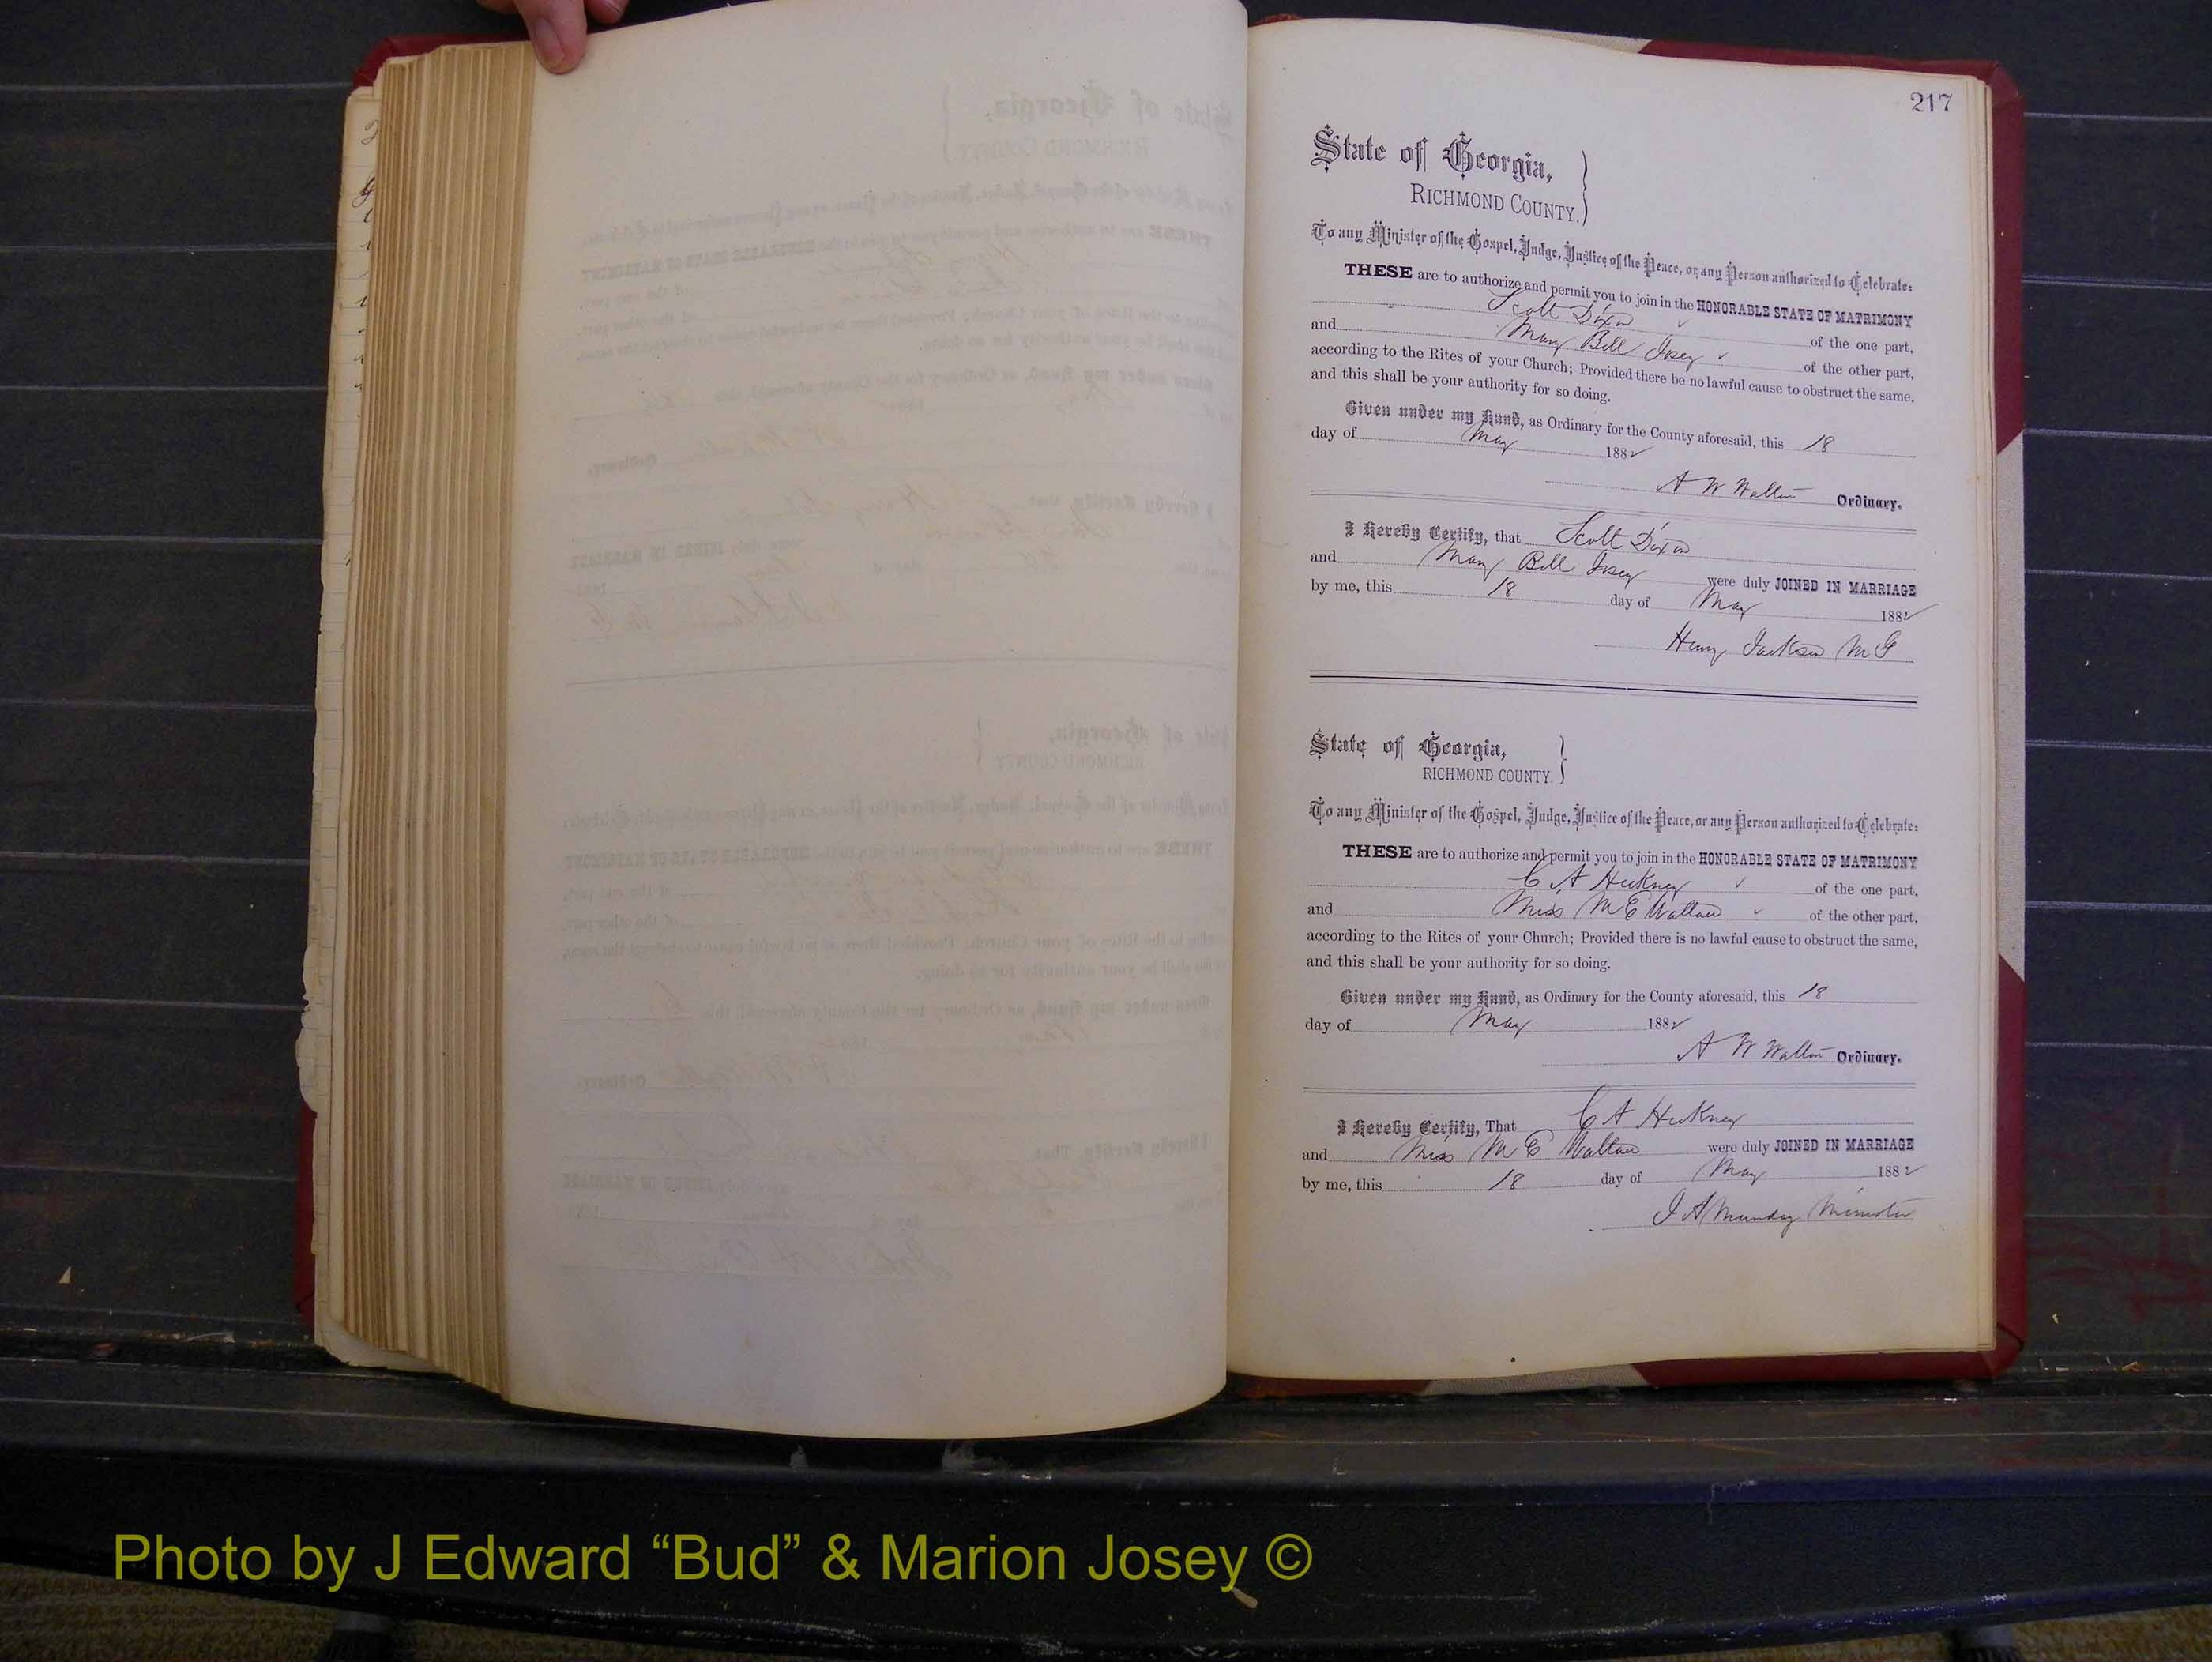 217
State of Georgia,
RICHMOND COUNTY.
To any Minister of the Gospel, Judge, Justice of the Peace, or any Person authorized to Celebrate:
THESE are to authorize and permit you to join in the HONORABLE STATE OF MATRIMONY
Scott Dixon of the one part,
and Mary Bell Josey of the other part,
according to the Rites of your Church; Provided there be no lawful cause to obstruct the same,
and this shall be your authority for so doing.
Given under my Hand, as Ordinary for the County aforesaid, this 18
day of May 1882
A W Walton Ordinary.
I Hereby Certify, that Scott Dixon
and Mary Bell Josey were duly JOINED IN MARRIAGE
by me, this 18 day of May 1882
Henry Jackson M G
State of Georgia,
RICHMOND COUNTY
To any Minister of the Gospel, Judge, Justice of the Peace, or any Person authorized to Celebrate:
THESE are to authorize and permit you to join in the HONORABLE STATE OF MATRIMONY
C A Hickney of the one part,
and Miss M E Walton of the other part,
according to the Rites of your Church; Provided there is no lawful cause to obstruct the same,
and this shall be your authority for so doing.
Given under my Hand, as Ordinary for the County aforesaid, this 18
day of May 1882
A W Walton Ordinary.
I Hereby Certify, That C A Hickney
and Miss M E Walton were duly JOINED IN MARRIAGE
by me, this 18 day of May 1882
J A Munday Minister
Photo by J Edward “Bud” & Marion Josey ©